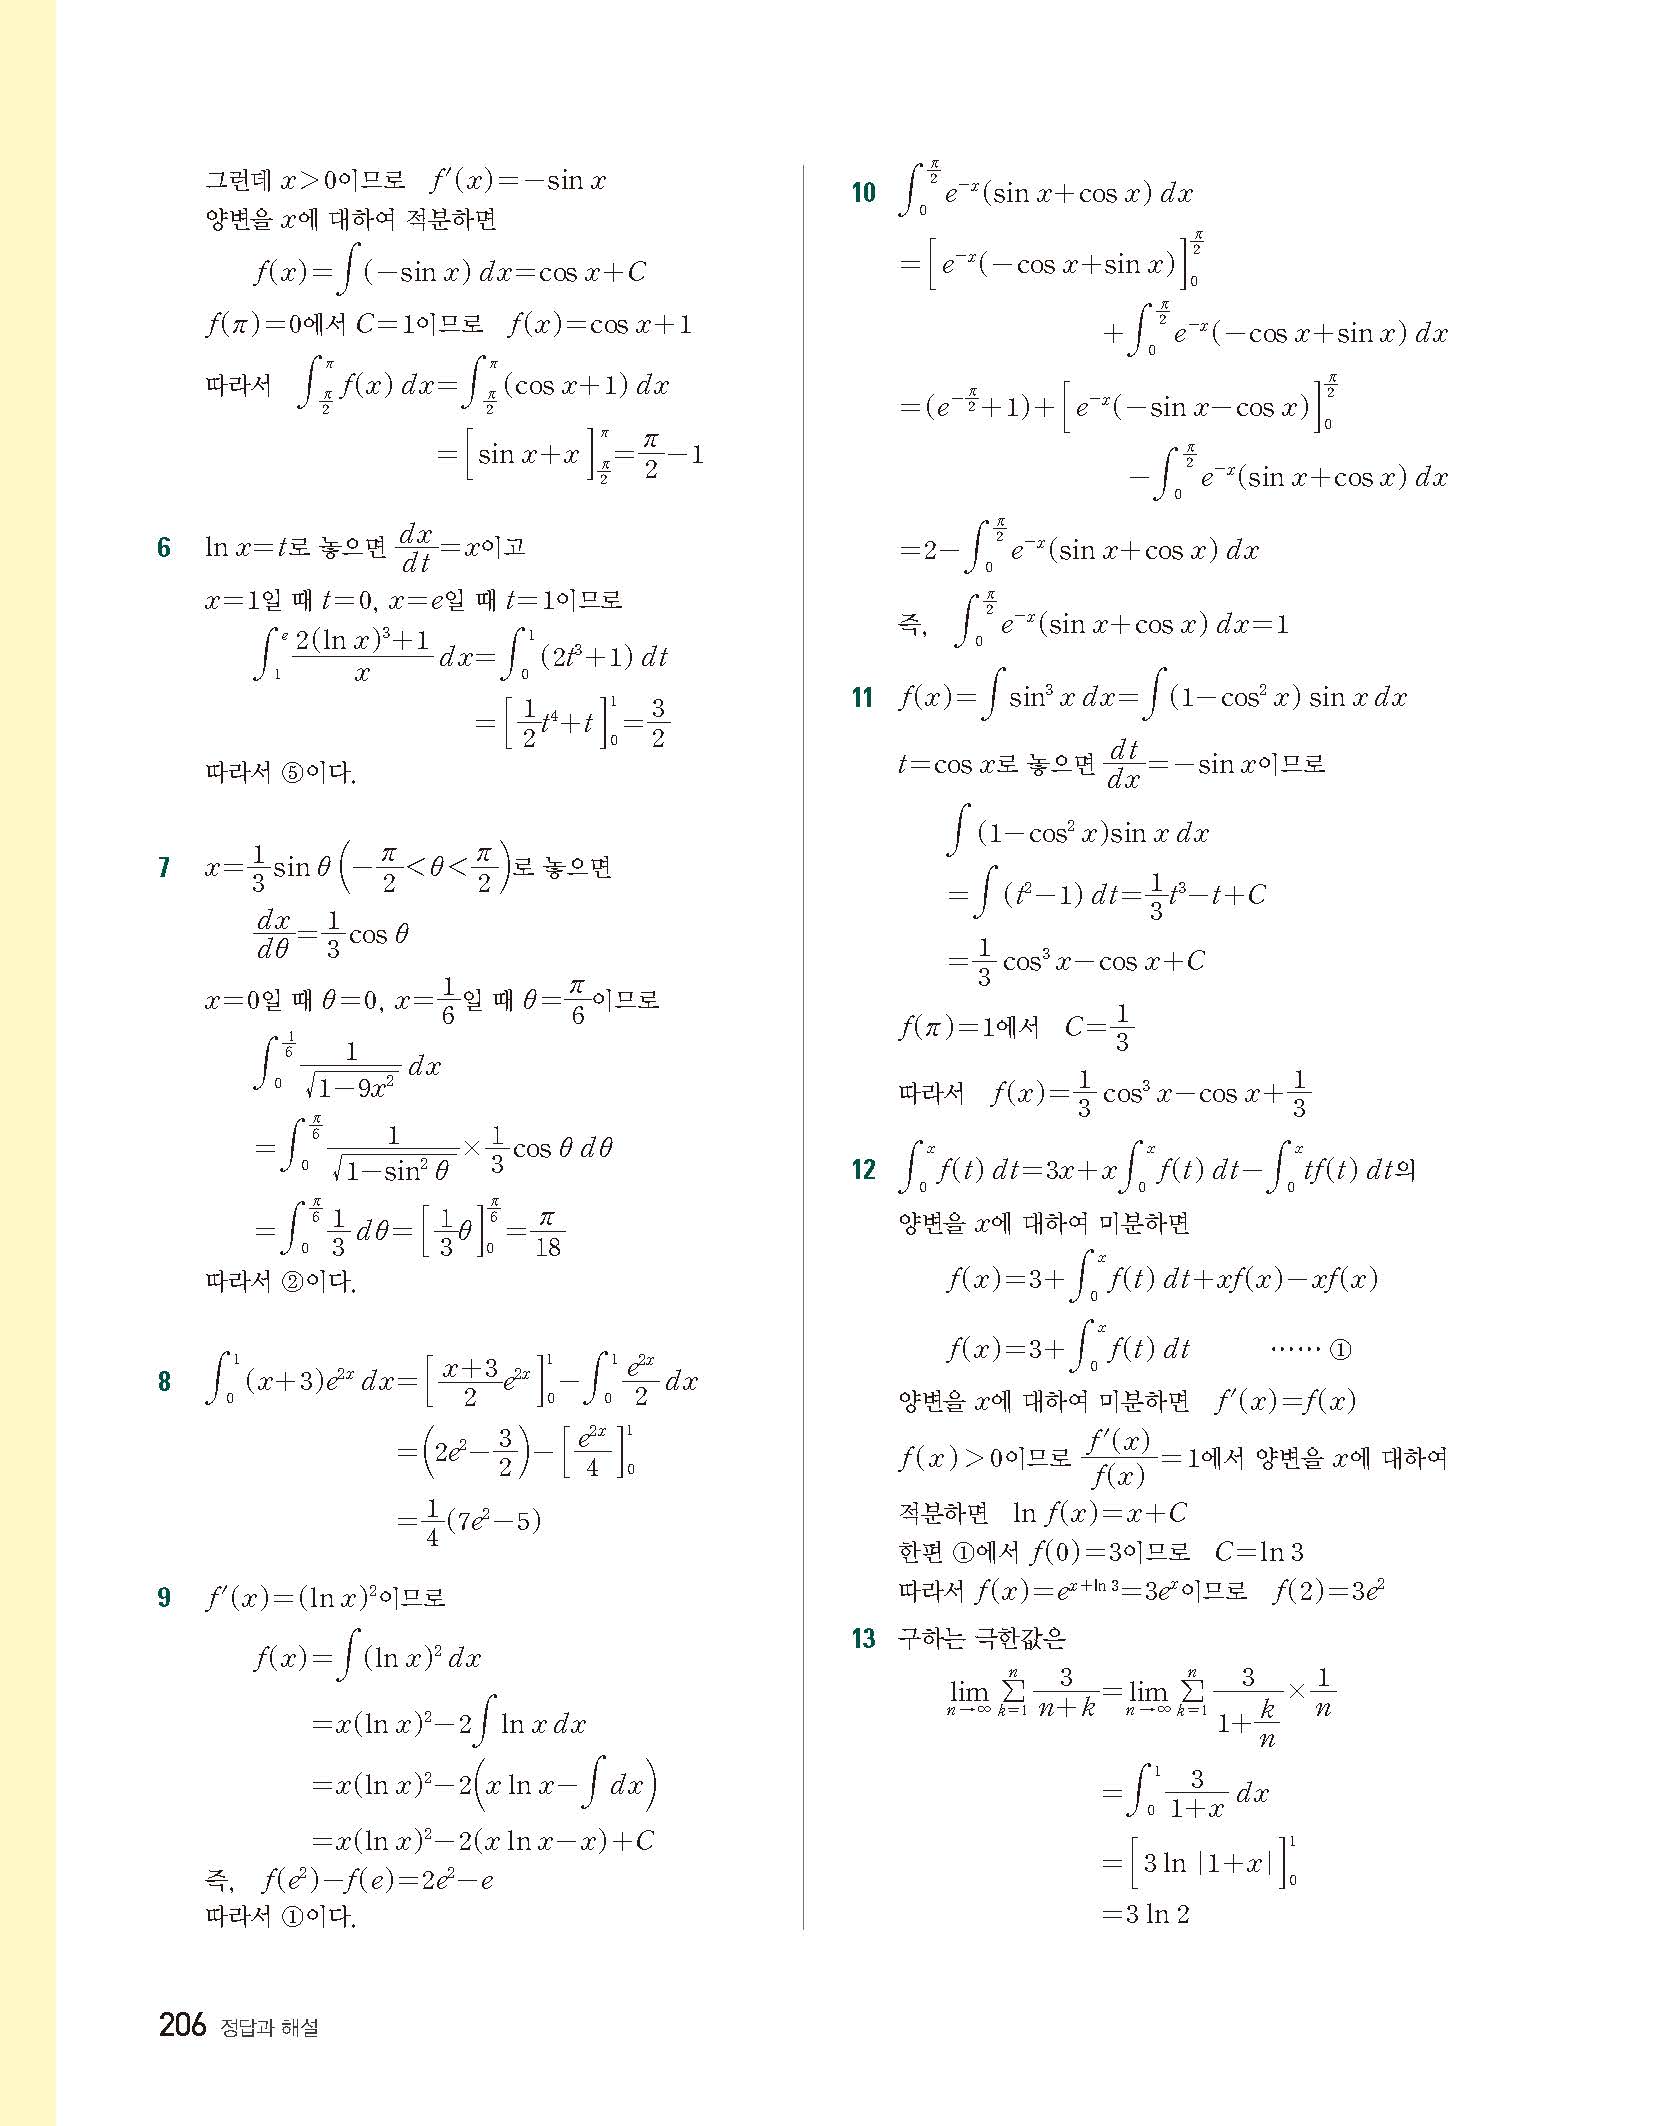 그런데 x>0이므로 f′(x)=-sin x
양변을 x에 대하여 적분하면
f(x)=∫(-sin x) dx=cos x+C
f(π)=0에서 C=1이므로 f(x)=cos x+1
따라서 ∫_{π/2}^{π} f(x) dx=∫_{π/2}^{π} (cos x+1) dx
=[sin x+x]_{π/2}^{π}=π/2-1
6 ln x=t로 놓으면 dx/dt=x이고
x=1일 때 t=0, x=e일 때 t=1이므로
∫_{1}^{e} {2(ln x)³+1}/x dx=∫_{0}^{1} (2t³+1) dt
=[1/2 t⁴+t]_{0}^{1}=3/2
따라서 ⑤이다.
7 x=1/3 sin θ (-π/2<θ<π/2)로 놓으면
dx/dθ=1/3 cos θ
x=0일 때 θ=0, x=1/6일 때 θ=π/6이므로
∫_{0}^{1/6} 1/√(1-9x²) dx
=∫_{0}^{π/6} 1/√(1-sin² θ)×1/3 cos θ dθ
=∫_{0}^{π/6} 1/3 dθ=[1/3 θ]_{0}^{π/6}=π/18
따라서 ②이다.
8 ∫_{0}^{1} (x+3)e^{2x} dx=[(x+3)/2 e^{2x}]_{0}^{1}-∫_{0}^{1} e^{2x}/2 dx
=(2e²-3/2)-[e^{2x}/4]_{0}^{1}
=1/4(7e²-5)
9 f′(x)=(ln x)²이므로
f(x)=∫(ln x)² dx
=x(ln x)²-2∫ln x dx
=x(ln x)²-2(x ln x-∫dx)
=x(ln x)²-2(x ln x-x)+C
즉, f(e²)-f(e)=2e²-e
따라서 ①이다.
10 ∫_{0}^{π/2} e^{-x}(sin x+cos x) dx
=[e^{-x}(-cos x+sin x)]_{0}^{π/2}
+∫_{0}^{π/2} e^{-x}(-cos x+sin x) dx
=(e^{-π/2}+1)+[e^{-x}(-sin x-cos x)]_{0}^{π/2}
-∫_{0}^{π/2} e^{-x}(sin x+cos x) dx
=2-∫_{0}^{π/2} e^{-x}(sin x+cos x) dx
즉, ∫_{0}^{π/2} e^{-x}(sin x+cos x) dx=1
11 f(x)=∫sin³ x dx=∫(1-cos² x) sin x dx
t=cos x로 놓으면 dt/dx=-sin x이므로
∫(1-cos² x)sin x dx
=∫(t²-1) dt=1/3 t³-t+C
=1/3 cos³ x-cos x+C
f(π)=1에서 C=1/3
따라서 f(x)=1/3 cos³ x-cos x+1/3
12 ∫_{0}^{x} f(t) dt=3x+x∫_{0}^{x} f(t) dt-∫_{0}^{x} tf(t) dt의
양변을 x에 대하여 미분하면
f(x)=3+∫_{0}^{x} f(t) dt+xf(x)-xf(x)
f(x)=3+∫_{0}^{x} f(t) dt …… ①
양변을 x에 대하여 미분하면 f′(x)=f(x)
f(x)>0이므로 f′(x)/f(x)=1에서 양변을 x에 대하여
적분하면 ln f(x)=x+C
한편 ①에서 f(0)=3이므로 C=ln 3
따라서 f(x)=e^{x+ln 3}=3e^{x}이므로 f(2)=3e²
13 구하는 극한값은
lim_{n→∞} Σ_{k=1}^{n} 3/(n+k)=lim_{n→∞} Σ_{k=1}^{n} 3/(1+k/n)×1/n
=∫_{0}^{1} 3/(1+x) dx
=[3 ln |1+x|]_{0}^{1}
=3 ln 2
206 정답과 해설